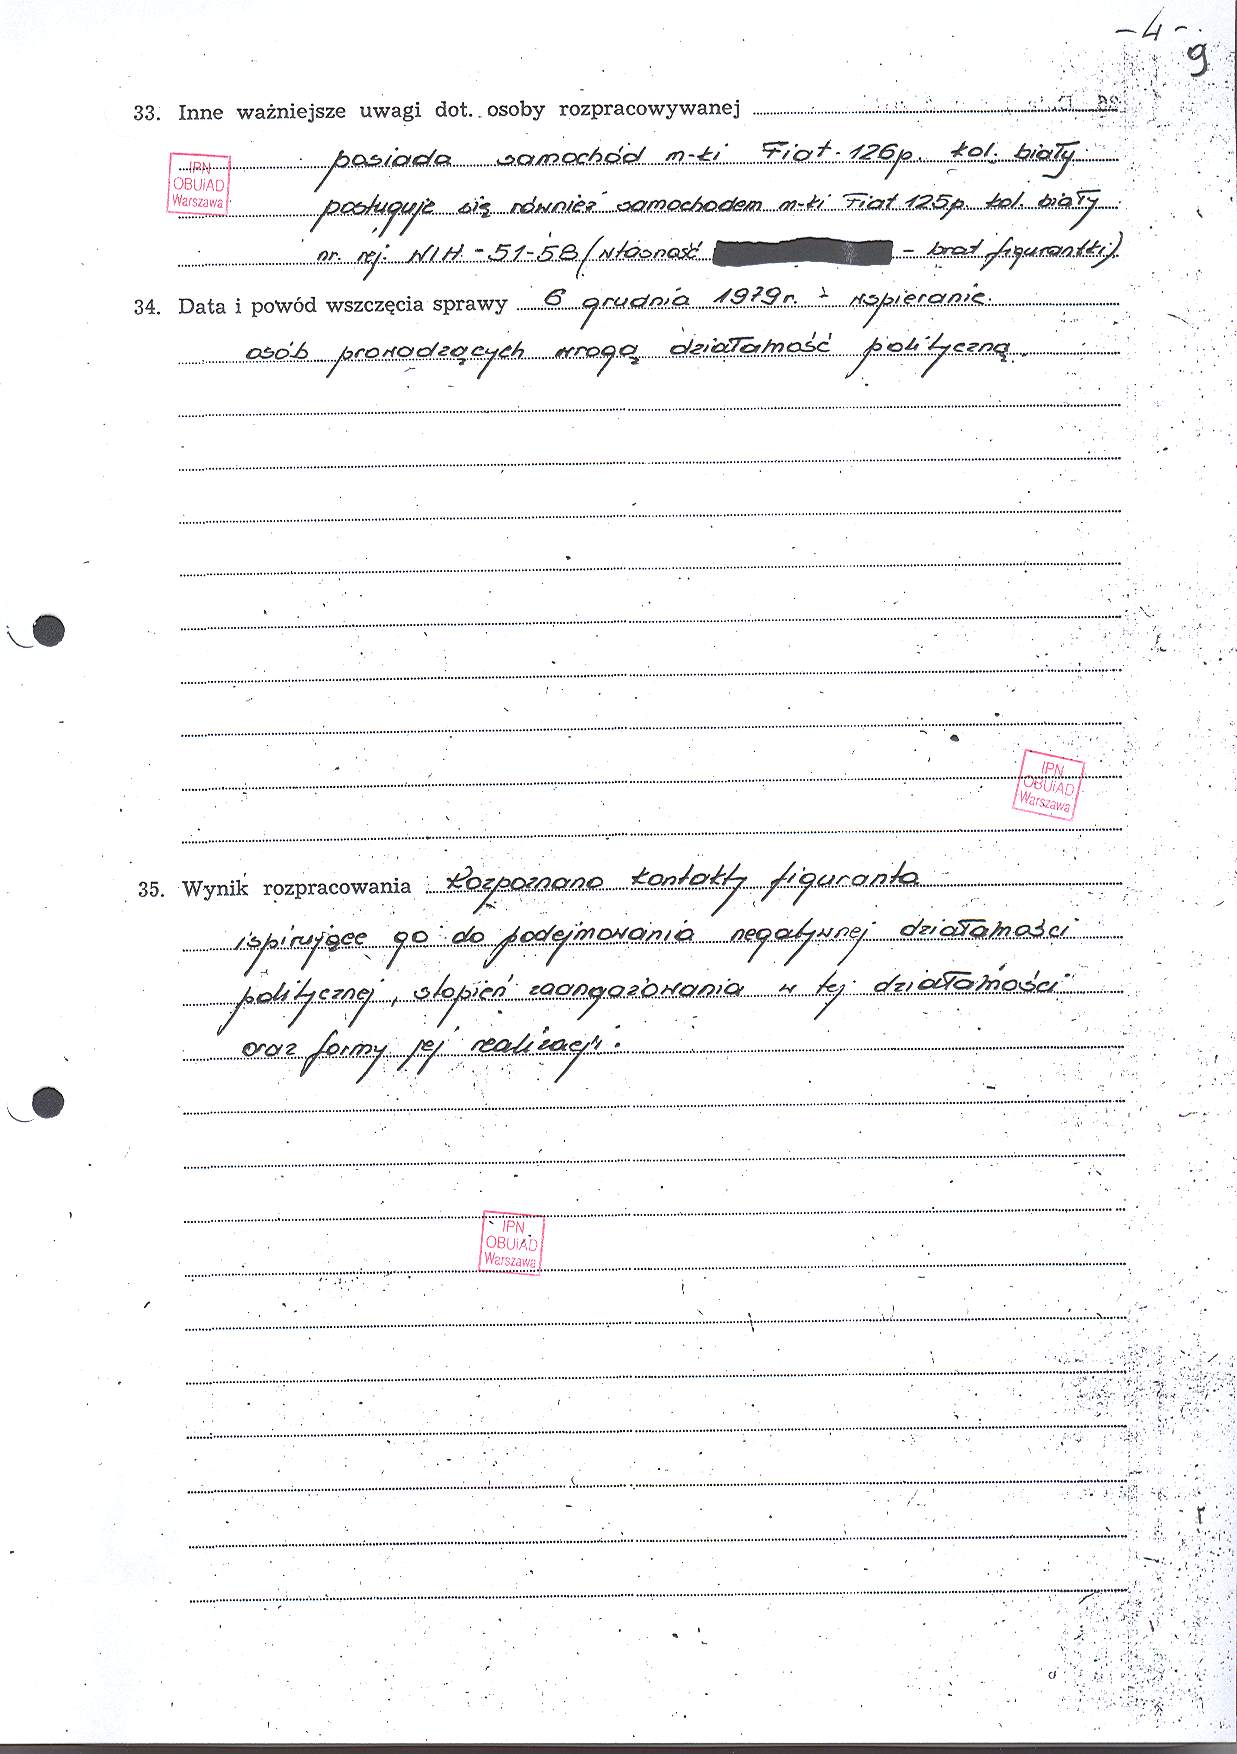 - 4 -
9
33. Inne ważniejsze uwagi dot. osoby rozpracowywanej
posiada samochód m-ki Fiat - 126p. kol. biały
posługuje się również samochodem m-ki Fiat 125p. kol. biały
nr. rej. WIH - 51-58 (własność - brat figurantki)
34. Data i powód wszczęcia sprawy 6 grudnia 1979r. - wspieranie
osób prowadzących wrogą działamość polityczną.
35. Wynik rozpracowania Rozpoznano kontakty figuranta
ispirujące go do podejmowania negatywnej działamości
politycznej, stopień zaangażowania w tej działamości
oraz formy jej realizacji.
IPN
OBUiAD
Warszawa
IPN
OBUiAD
Warszawa
IPN
OBUiAD
Warszawa